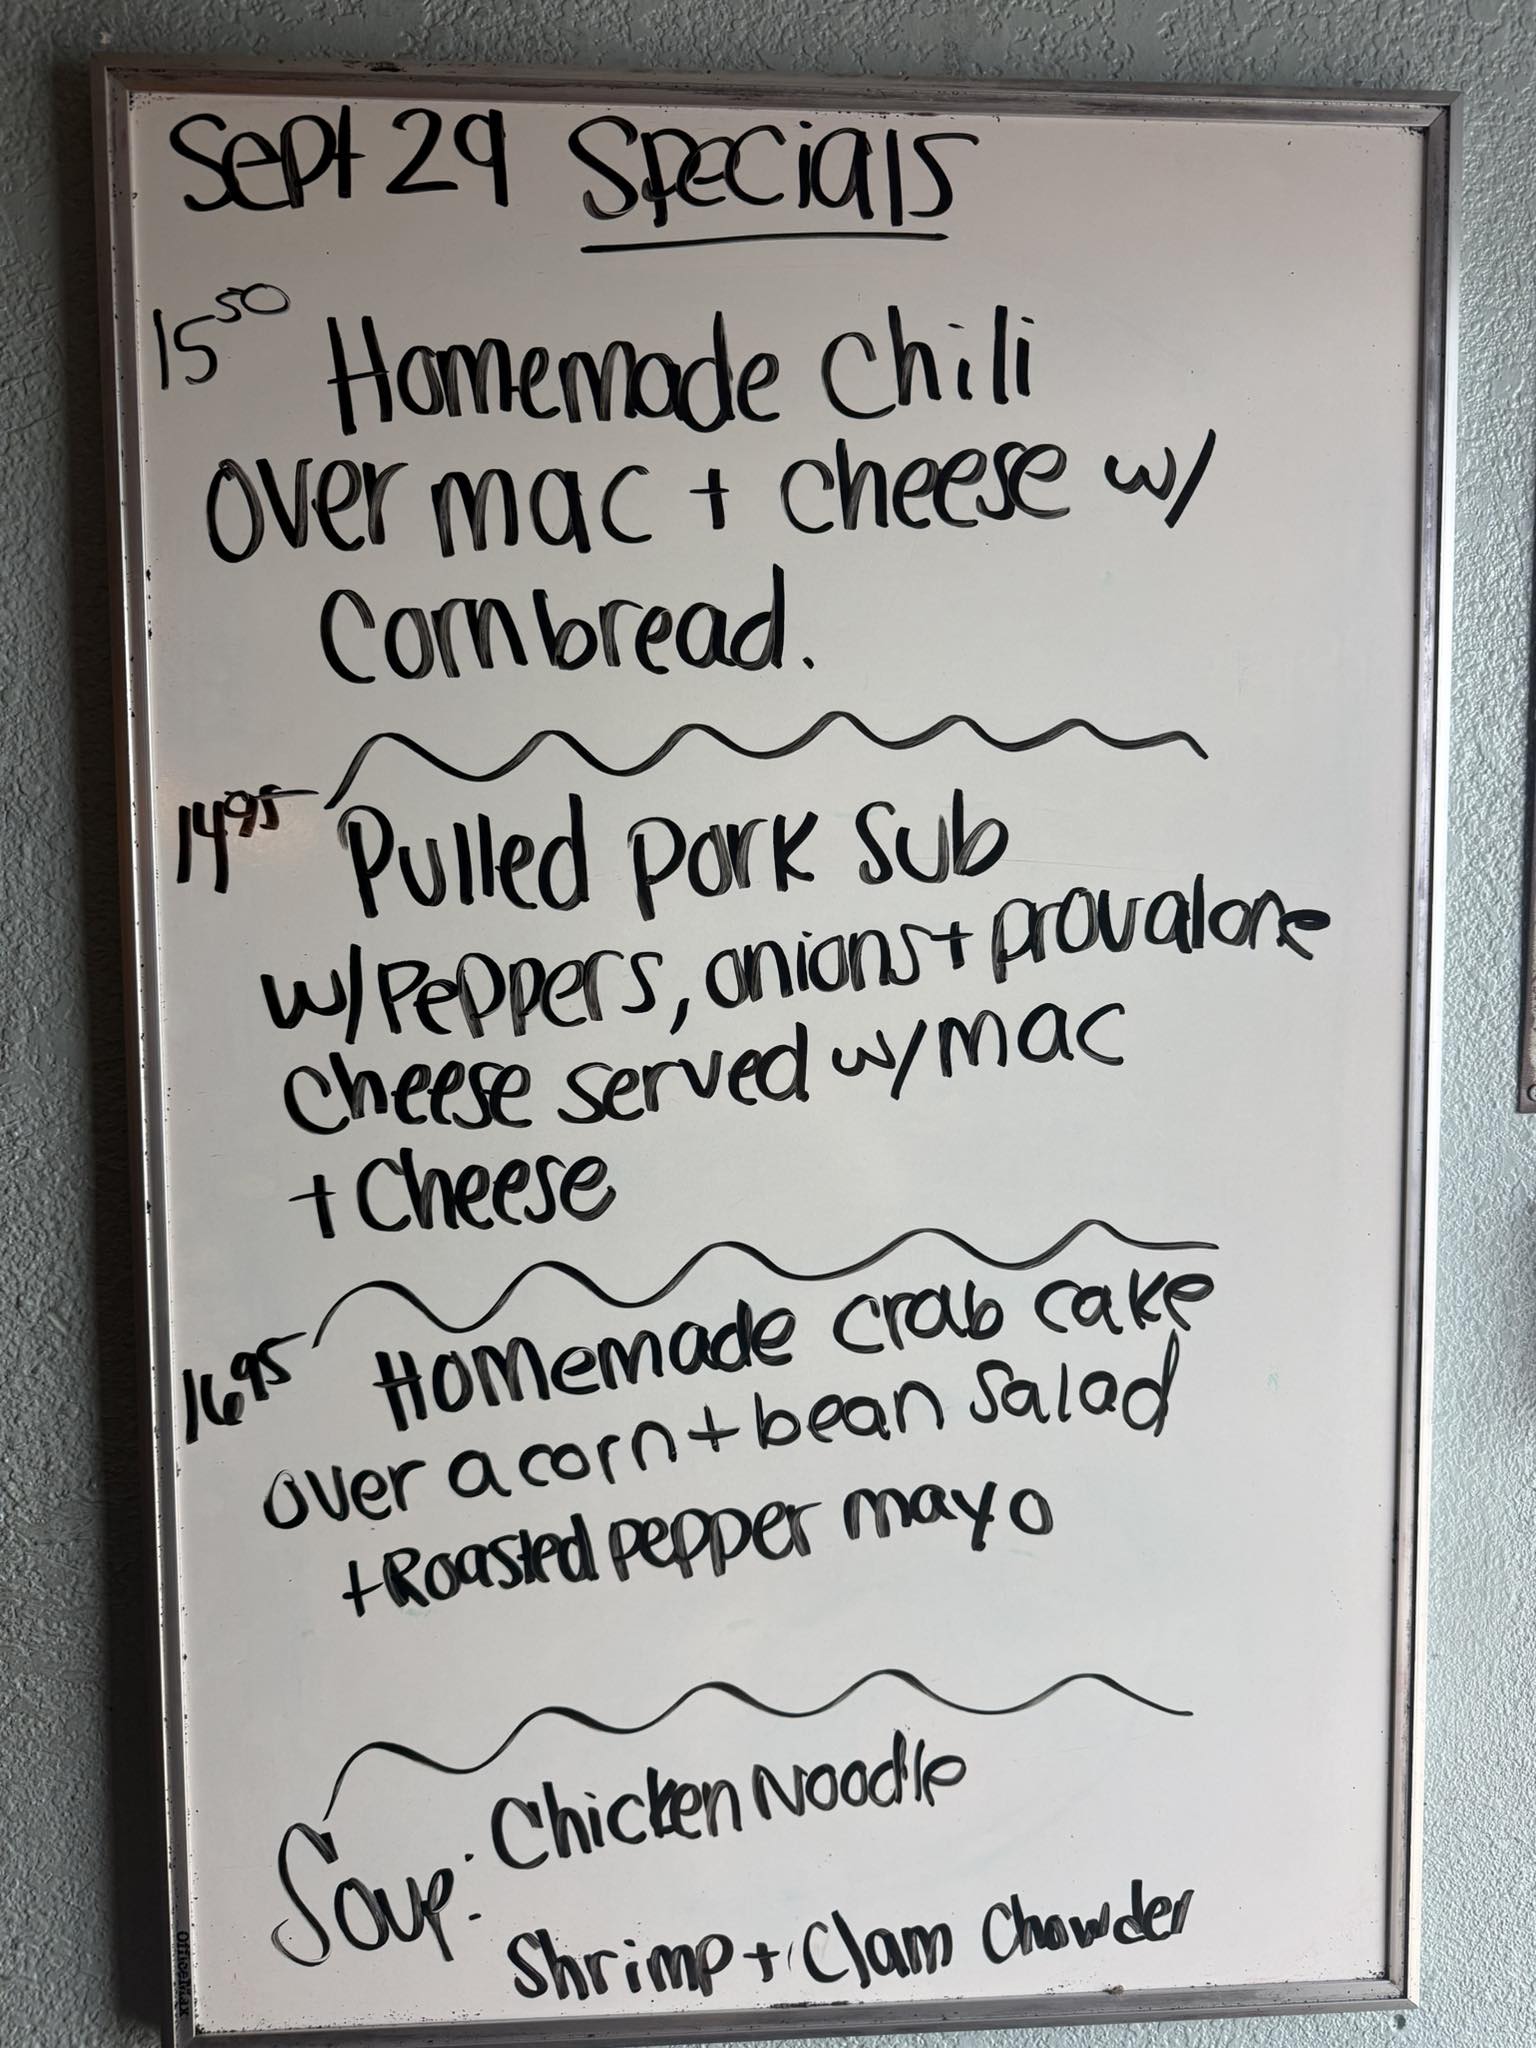 Sept 29 Specials
15 50 Homemade Chili
over mac + cheese w/
Cornbread.
14 95 Pulled pork sub
w/Peppers, onions + provalone
cheese served w/mac
+ Cheese
16 95 Homemade crab cake
over a corn + bean salad
+ Roasted pepper mayo
Soup: Chicken Noodle
Shrimp + Clam Chowder
OfficeMax